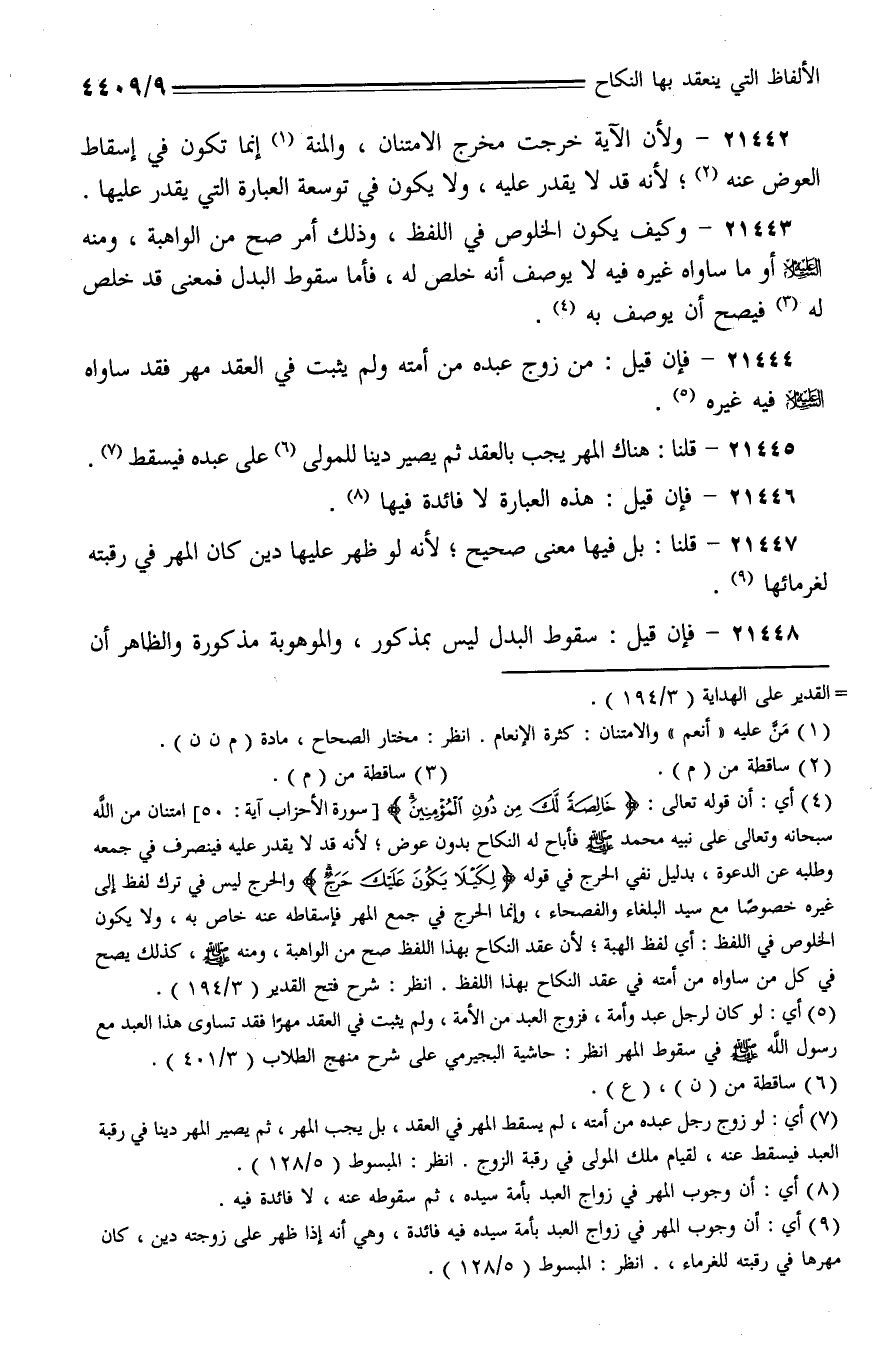 الألفاظ التي ينعقد بها النكاح ٤٤٠٩/٩
٢١٤٤٢ – ولأن الآية خرجت مخرج الامتنان ، والمنة (١) إنما تكون في إسقاط
العوض عنه (٢) ؛ لأنه قد لا يقدر عليه ، ولا يكون في توسعة العبارة التي يقدر عليها .
٢١٤٤٣ – وكيف يكون الخلوص في اللفظ ، وذلك أمر صح من الواهبة ، ومنه
عليه السلام أو ما ساواه غيره فيه لا يوصف أنه خلص له ، فأما سقوط البدل فمعنى قد خلص
له (٣) فيصح أن يوصف به (٤) .
٢١٤٤٤ – فإن قيل : من زوج عبده من أمته ولم يثبت في العقد مهر فقد ساواه
عليه السلام فيه غيره (٥) .
٢١٤٤٥ – قلنا : هناك المهر يجب بالعقد ثم يصير دينا للمولى (٦) على عبده فيسقط (٧) .
٢١٤٤٦ – فإن قيل : هذه العبارة لا فائدة فيها (٨) .
٢١٤٤٧ – قلنا : بل فيها معنى صحيح ؛ لأنه لو ظهر عليها دين كان المهر في رقبته
لغرمائها (٩) .
٢١٤٤٨ – فإن قيل : سقوط البدل ليس بمذكور ، والموهوبة مذكورة والظاهر أن
= القدير على الهداية ( ١٩٤/٣ ) .
(١) مَنَّ عليه « أنعم » والامتنان : كثرة الإنعام . انظر : مختار الصحاح ، مادة ( م ن ن ) .
(٢) ساقطة من ( م ) . (٣) ساقطة من ( م ) .
(٤) أي : أن قوله تعالى : ﴿ خَالِصَةً لَّكَ مِن دُونِ ٱلْمُؤْمِنِينَۗ ﴾ [سورة الأحزاب آية : ٥٠] امتنان من اللَّه
سبحانه وتعالى على نبيه محمد ﷺ فأباح له النكاح بدون عوض ؛ لأنه قد لا يقدر عليه فينصرف في جمعه
وطلبه عن الدعوة ، بدليل نفي الحرج في قوله ﴿ لِكَيْلَا يَكُونَ عَلَيْكَ حَرَجٌۗ ﴾ والحرج ليس في ترك لفظ إلى
غيره خصوصًا مع سيد البلغاء والفصحاء ، وإنما الحرج في جمع المهر فإسقاطه عنه خاص به ، ولا يكون
الخلوص في اللفظ : أي لفظ الهبة ؛ لأن عقد النكاح بهذا اللفظ صح من الواهبة ، ومنه ﷺ ، كذلك يصح
في كل من ساواه من أمته في عقد النكاح بهذا اللفظ . انظر : شرح فتح القدير ( ١٩٤/٣ ) .
(٥) أي : لو كان لرجل عبد وأمة ، فزوج العبد من الأمة ، ولم يثبت في العقد مهرًا فقد تساوى هذا العبد مع
رسول اللَّه ﷺ في سقوط المهر انظر : حاشية البجيرمي على شرح منهج الطلاب ( ٤٠١/٣ ) .
(٦) ساقطة من ( ن ) ، ( ع ) .
(٧) أي : لو زوج رجل عبده من أمته ، لم يسقط المهر في العقد ، بل يجب المهر ، ثم يصير المهر دينا في رقبة
العبد فيسقط عنه ، لقيام ملك المولى في رقبة الزوج . انظر : المبسوط ( ١٢٨/٥ ) .
(٨) أي : أن وجوب المهر في زواج العبد بأمة سيده ، ثم سقوطه عنه ، لا فائدة فيه .
(٩) أي : أن وجوب المهر في زواج العبد بأمة سيده فيه فائدة ، وهي أنه إذا ظهر على زوجته دين ، كان
مهرها في رقبته للغرماء ، . انظر : المبسوط ( ١٢٨/٥ ) .